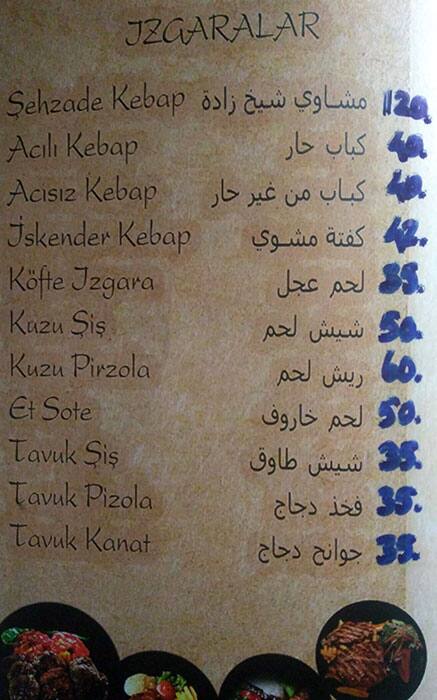 IZGARALAR
Şehzade Kebap مشاوي شيخ زادة 120.
Acılı Kebap كباب حار 40.
Acısız Kebap كباب من غير حار 40.
İskender Kebap كفتة مشوي 42.
Köfte Izgara لحم عجل 35.
Kuzu Şiş شيش لحم 50.
Kuzu Pirzola ريش لحم 60.
Et Sote لحم خاروف 50.
Tavuk Şiş شيش طاوق 35.
Tavuk Pizola فخذ دجاج 35.
Tavuk Kanat جوانح دجاج 35.